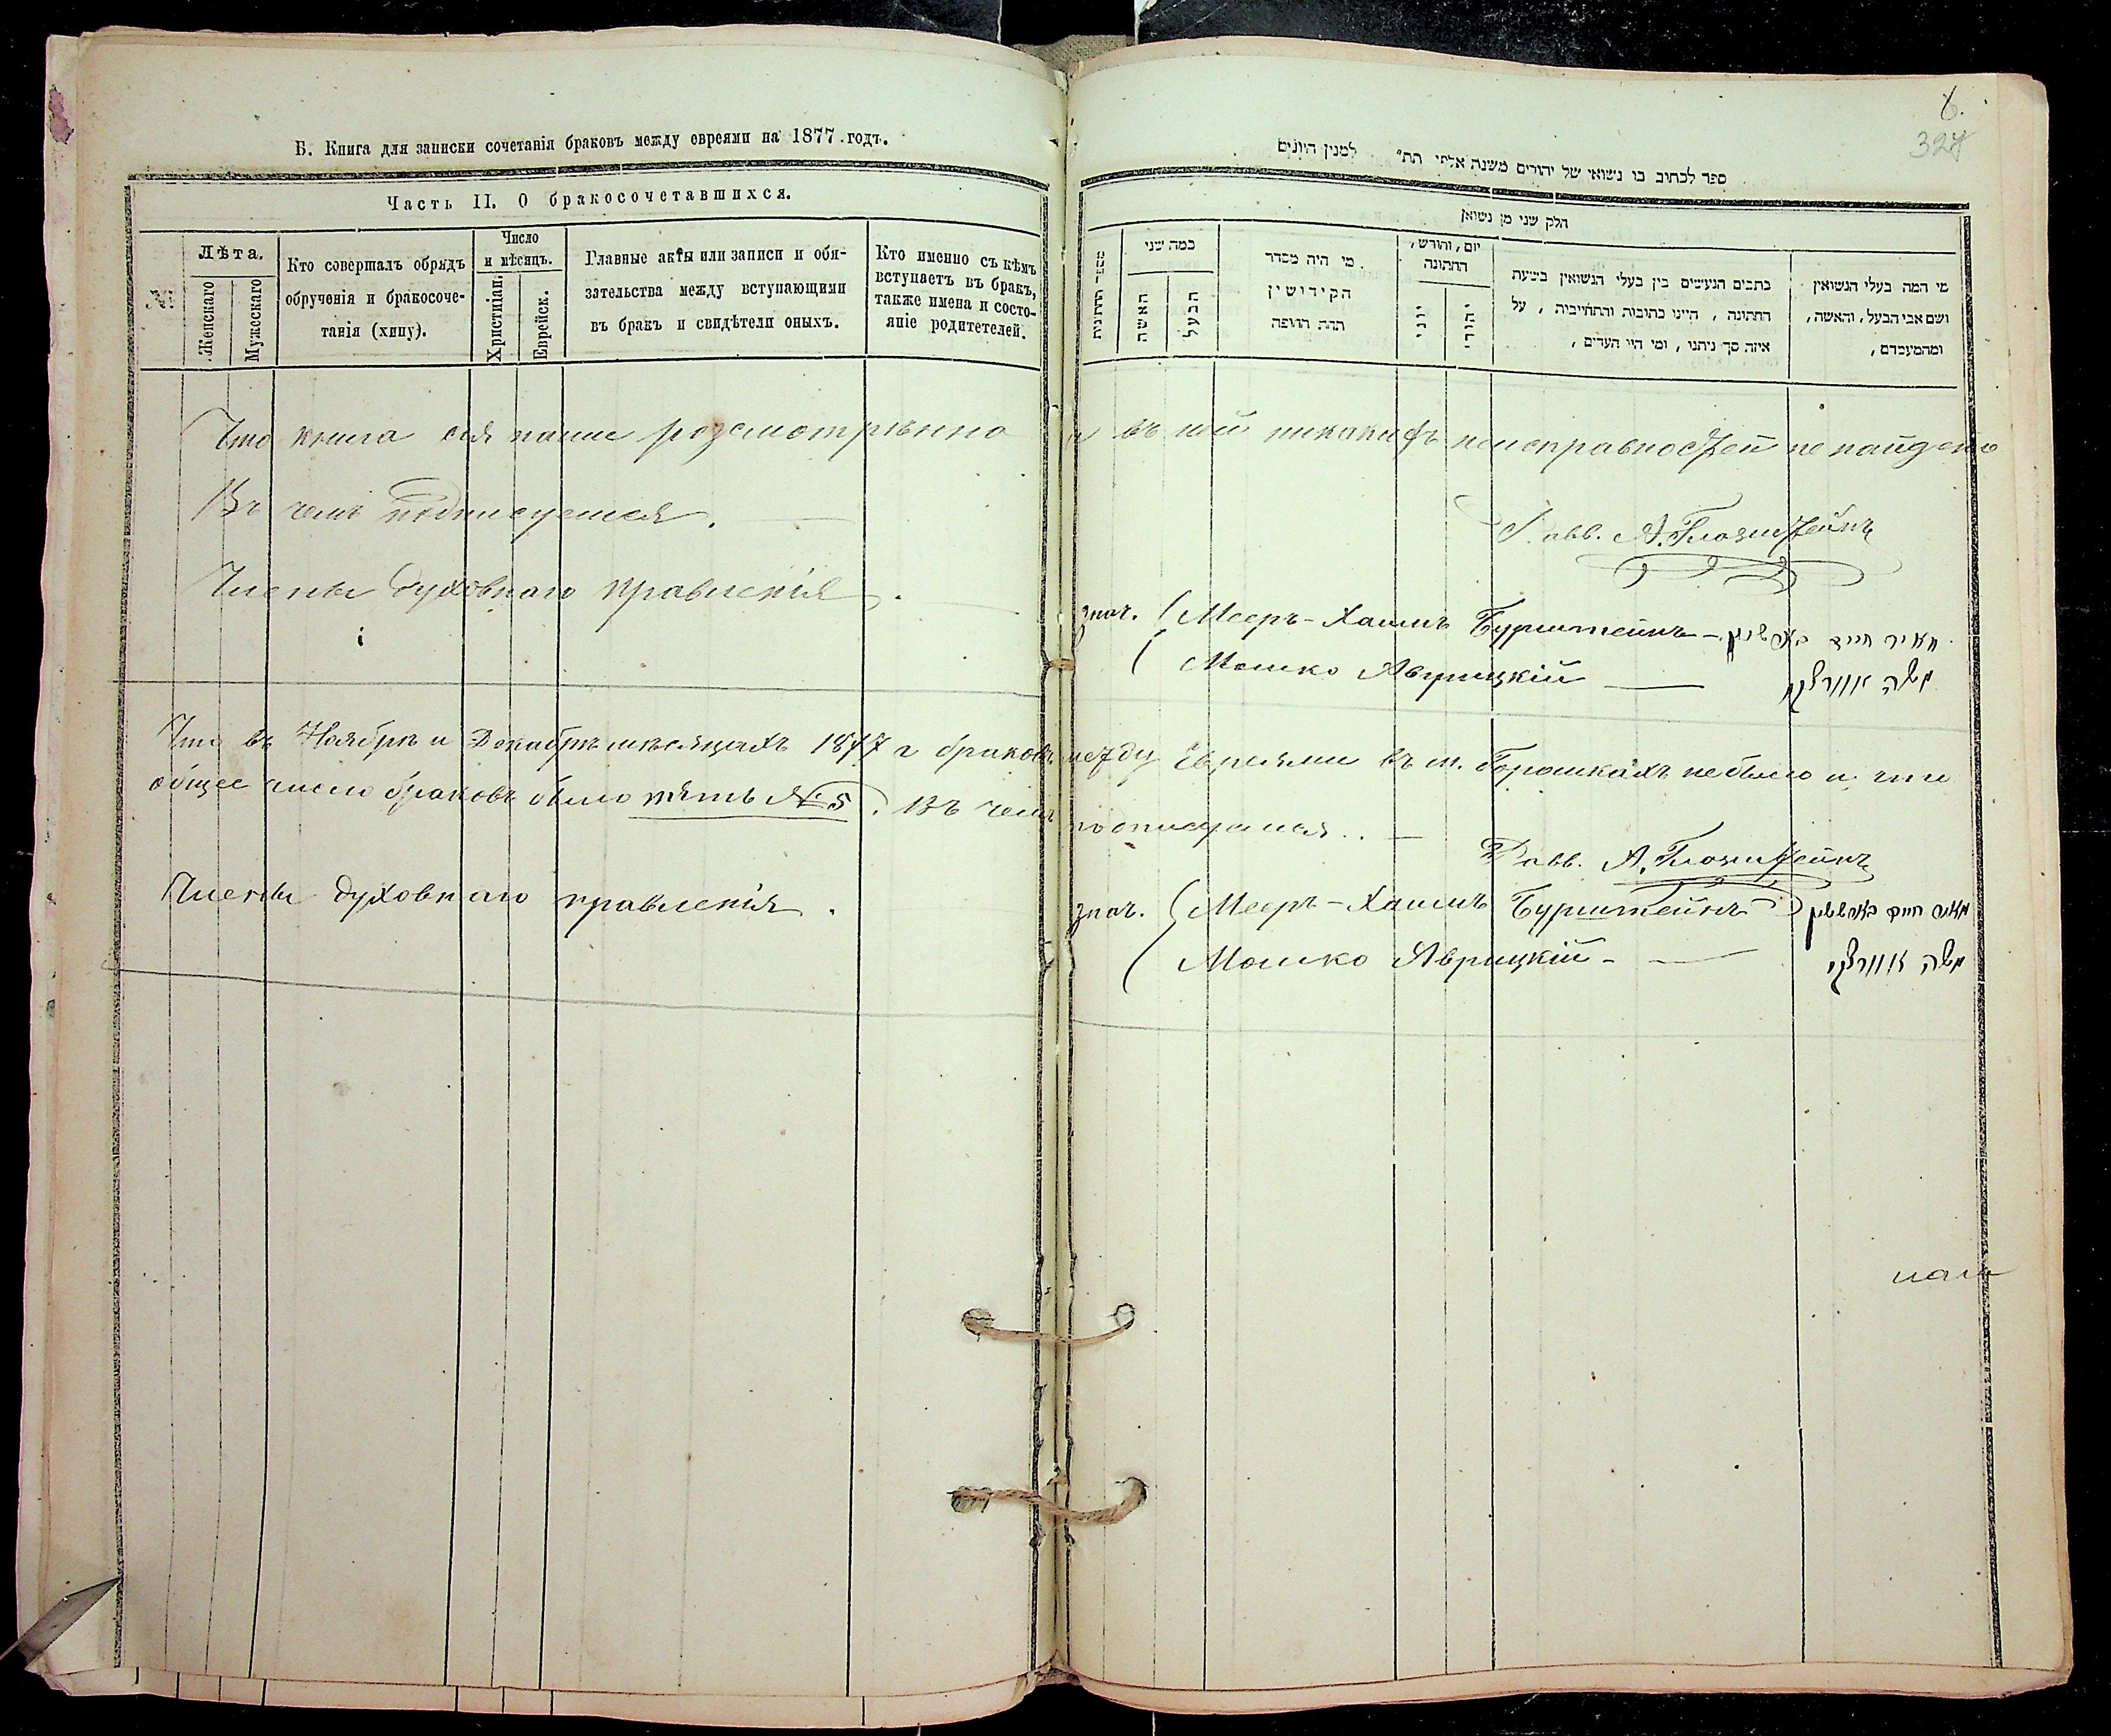 Б. Книга для записки сочетанія браковъ между евреями на 1877 годъ.
Часть II. О бракосочетавшихся.
№
Лѣта.
Женскаго
Мужескаго
Кто совершалъ обрядъ
обрученія и бракосоче-
танія (хипу).
Число
и мѣсяцъ.
Христіан.
Еврейск.
Главные акты или записи и обя-
зательства между вступающими
въ бракъ и свидѣтели оныхъ.
Кто именно съ кѣмъ
вступаетъ въ бракъ,
также имена и состо-
яніе родитетелей.
327
ספר לכתוב בו נשואי של יהודים משנה אלפי תת״ למנין היונים
חלק שני מן נשואין
מספר החתונות
כמה שני
האשה
הבעל
מי היה מסדר
הקידושין
תחת החופה
יום, וחודש,
החתונה
יוני
יהודי
כתבים הנעשים בין בעלי הנשואין בשעת
החתונה, היינו כתובות והתחייבות, על
איזה סך ניתנו, ומי היו העדים,
מי המה בעלי הנשואין
ושם אבי הבעל, והאשה,
ומהמעמדם,
Что книга сія нами розсмотрѣнно и въ ней никакихъ неисправностей не найдено
Въ чемъ подписуемся.
Равв. А. Глозштейнъ
Члены духовнаго правленія.
знач. Мееръ-Хаимъ Бурштейнъ - מאיר חיים בארשטיין
Мошко Авруцкій משה אוורצקי
Что въ Ноябрѣ и Декабрѣ мѣсяцахъ 1877 г браковъ между Евреями въ м. Горошкахъ небыло и что
общее число браковъ было пять № 5. Въ чемъ подписуемся.
Равв. А. Глозштейнъ
Члены духовнаго правленія.
знач. Мееръ-Хаимъ Бурштейнъ מאיר חיים בארשטיין
Мошко Авруцкій - משה אוורצקי